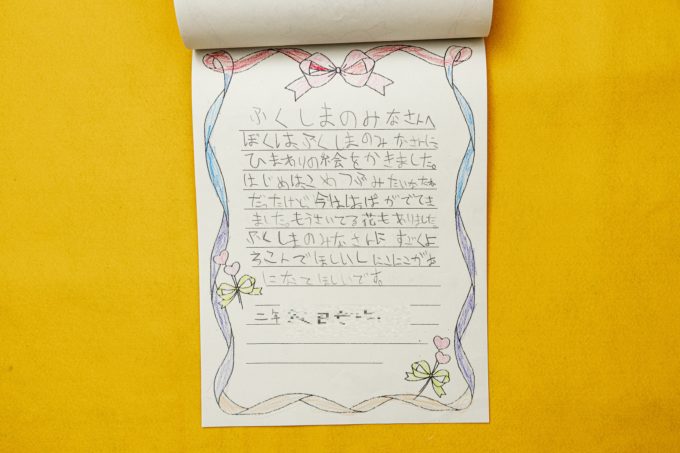 ふくしまのみなさんへ
ぼくは、ふくしまのみなさんに
ひまわりの絵をかきました。
はじめは、こめつぶみたいなたね
だったけど今は、はっぱがでてき
ました。もうさいてる花もありました。
ふくしまのみなさんにすごくよ
ろこんでほしいしにこにこがお
になてほしいです。
二年